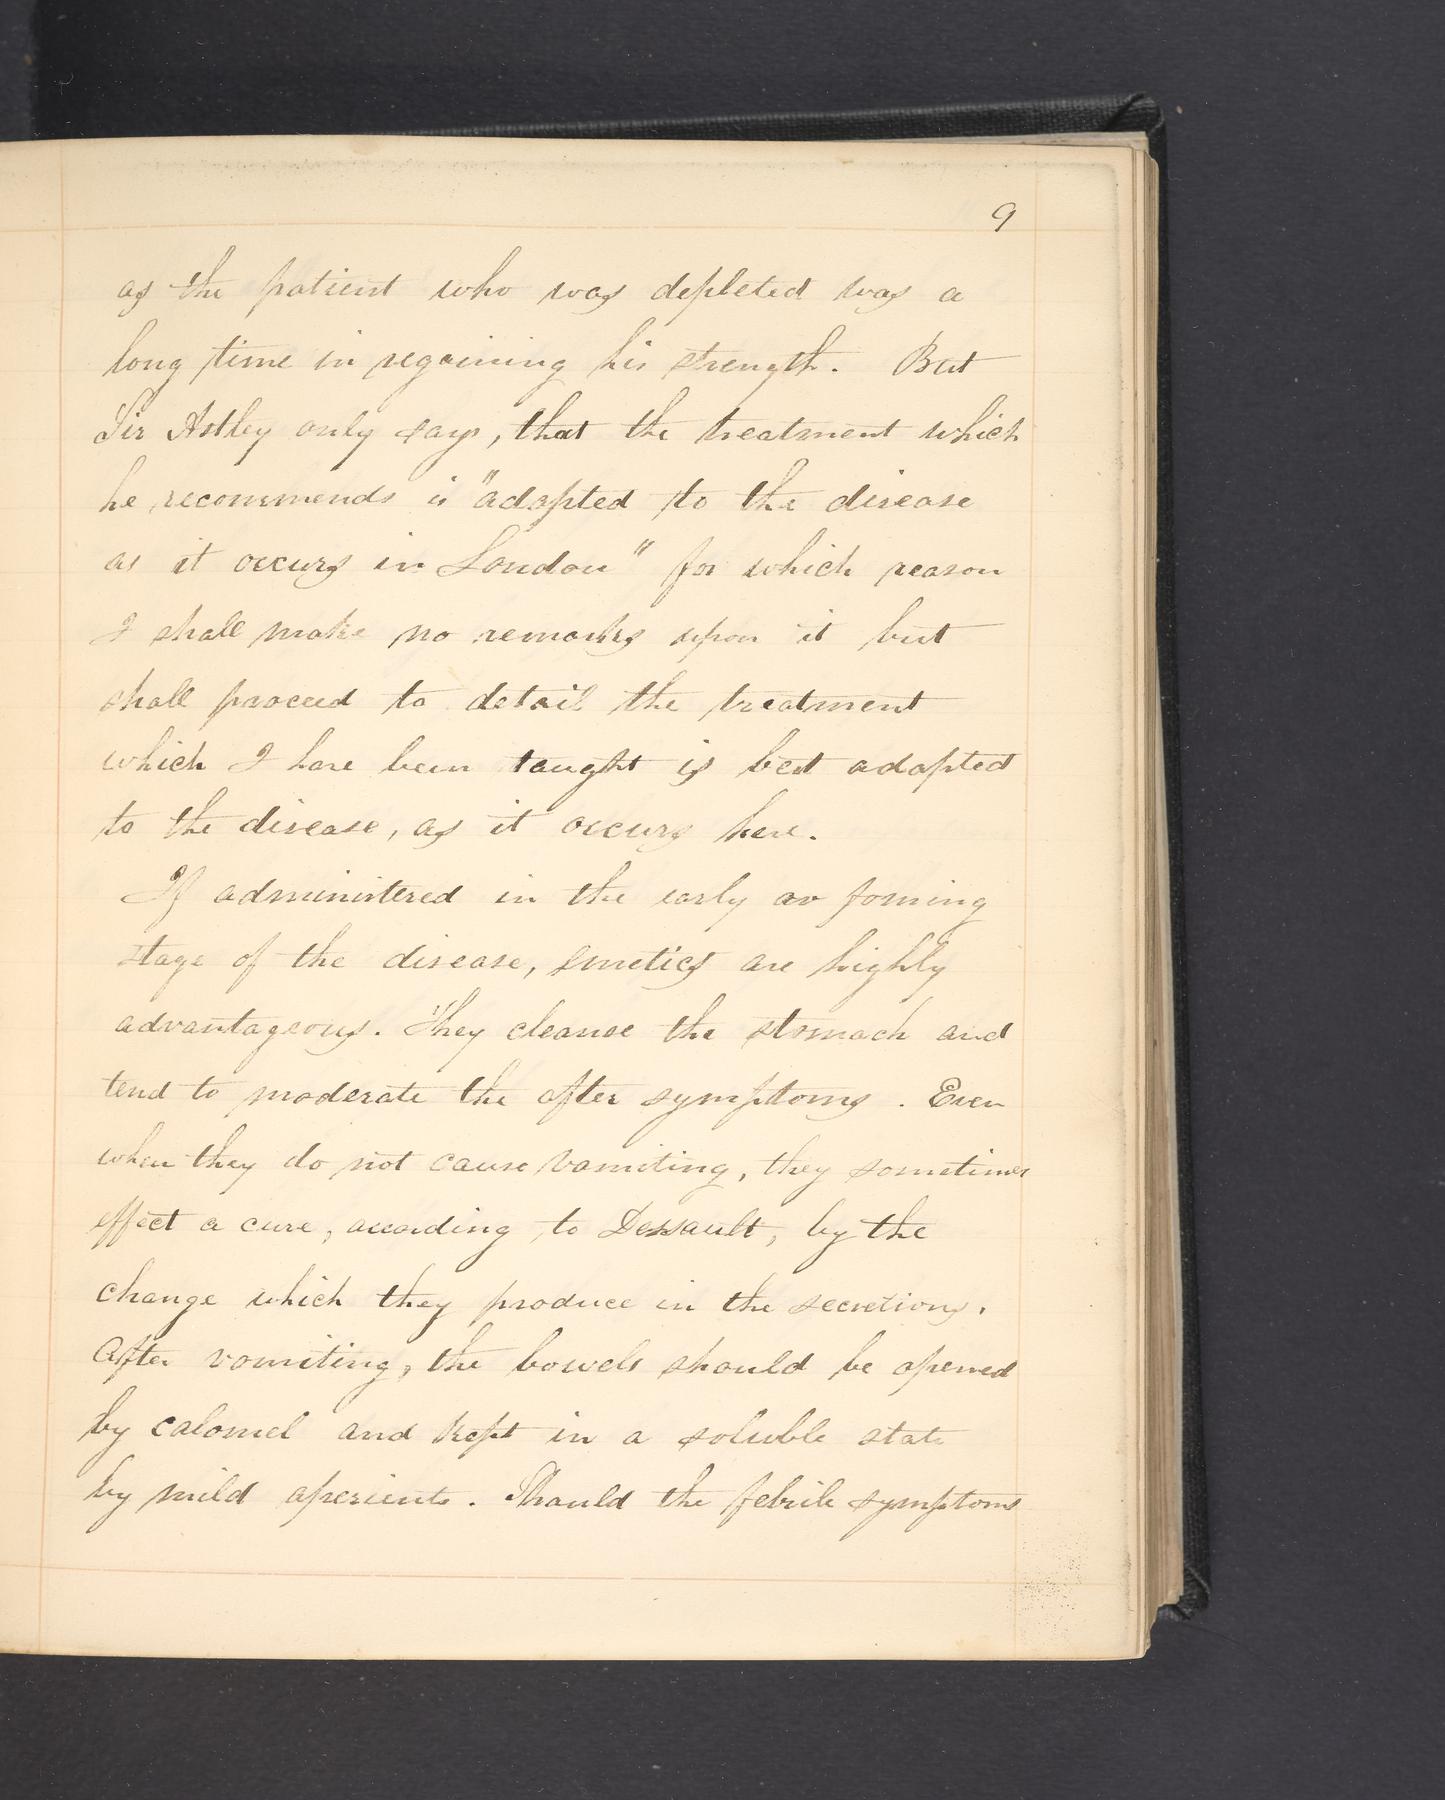 9
as the patient who was depleted was a
long time in regaining his strength. But
Sir Astley only says, that the treatment which
he recommends is "adapted to the disease
as it occurs in London" for which reason
I shall make no remarks upon it but
shall proceed to detail the treatment
which I have been taught is best adapted
to the disease, as it occurs here.
If administered in the early or forming
stage of the disease, emetics are highly
advantageous. They cleanse the stomach and
tend to moderate the after symptoms. Even
when they do not cause vomiting, they sometimes
effect a cure, according to Dessault, by the
change which they produce in the secretions.
After vomiting, the bowels should be opened
by calomel and kept in a soluble state
by mild aperients. Should the febrile symptoms